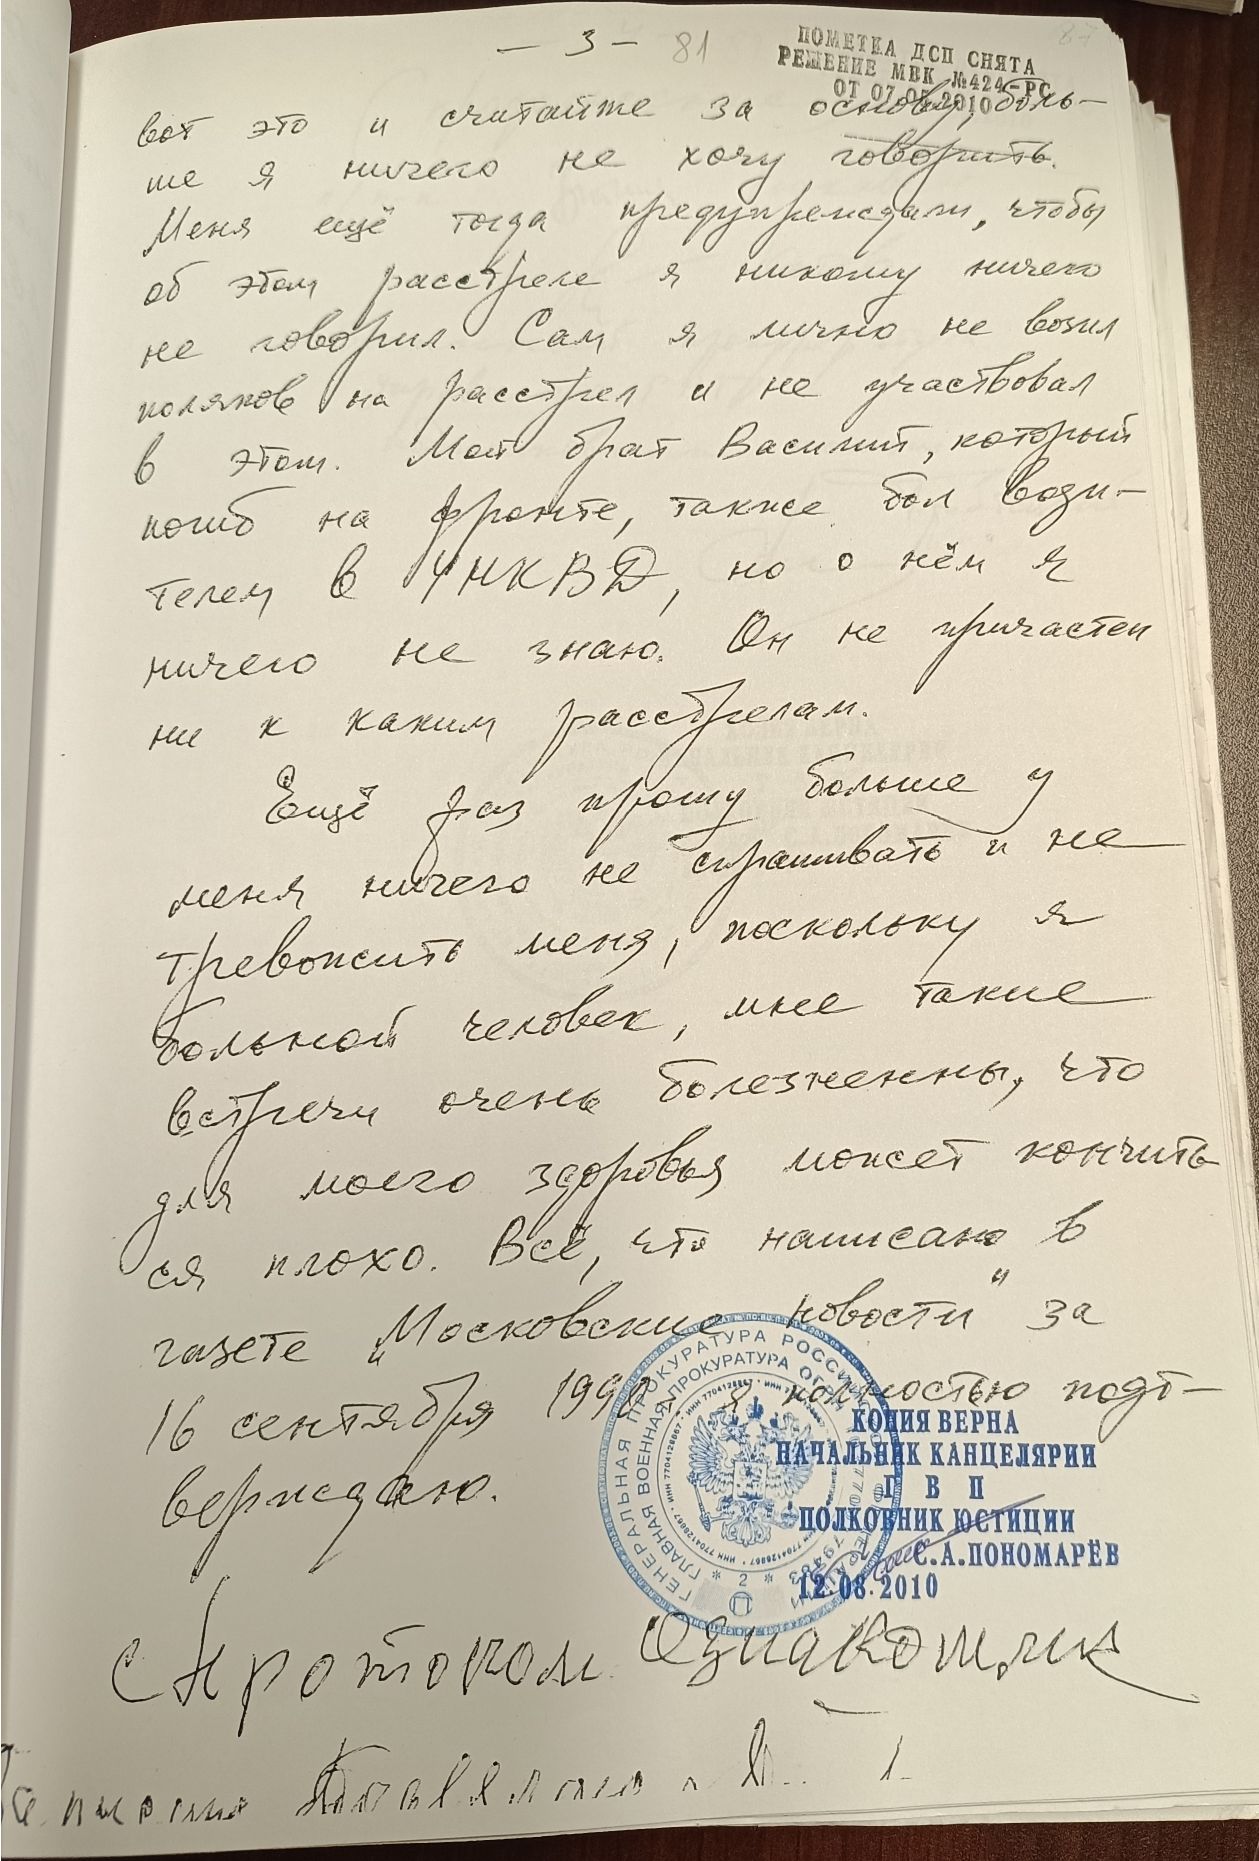 — 3 — 81
87
ПОМЕТКА ДСП СНЯТА
РЕШЕНИЕ МВК №424-РС
ОТ 07.05.2010
вот это и считайте за основу, боль-
ше я ничего не хочу говорить.
Меня ещё тогда предупреждали, чтобы
об этом расстреле я никому ничего
не говорил. Сам я лично не возил
поляков на расстрел и не участвовал
в этом. Мой брат Василий, который
погиб на фронте, также был води-
телем в УНКВД, но о нём я
ничего не знаю. Он не причастен
ни к каким расстрелам.
Ещё раз прошу больше у
меня ничего не спрашивать и не
тревожить меня, поскольку я
больной человек, мне такие
встречи очень болезненны, что
для моего здоровья может кончить
ся плохо. Всё, что написано в
газете „Московские новости" за
16 сентября 1990 я полностью подт-
верждаю.
ГЕНЕРАЛЬНАЯ ПРОКУРАТУРА РОССИЙСКОЙ ФЕДЕРАЦИИ
ГЛАВНАЯ ВОЕННАЯ ПРОКУРАТУРА ОГРН
ИНН 7704128867
* 2 *
КОПИЯ ВЕРНА
НАЧАЛЬНИК КАНЦЕЛЯРИИ
Г В П
ПОЛКОВНИК ЮСТИЦИИ
С.А.ПОНОМАРЁВ
12.08.2010
с протоколом ознакомлик